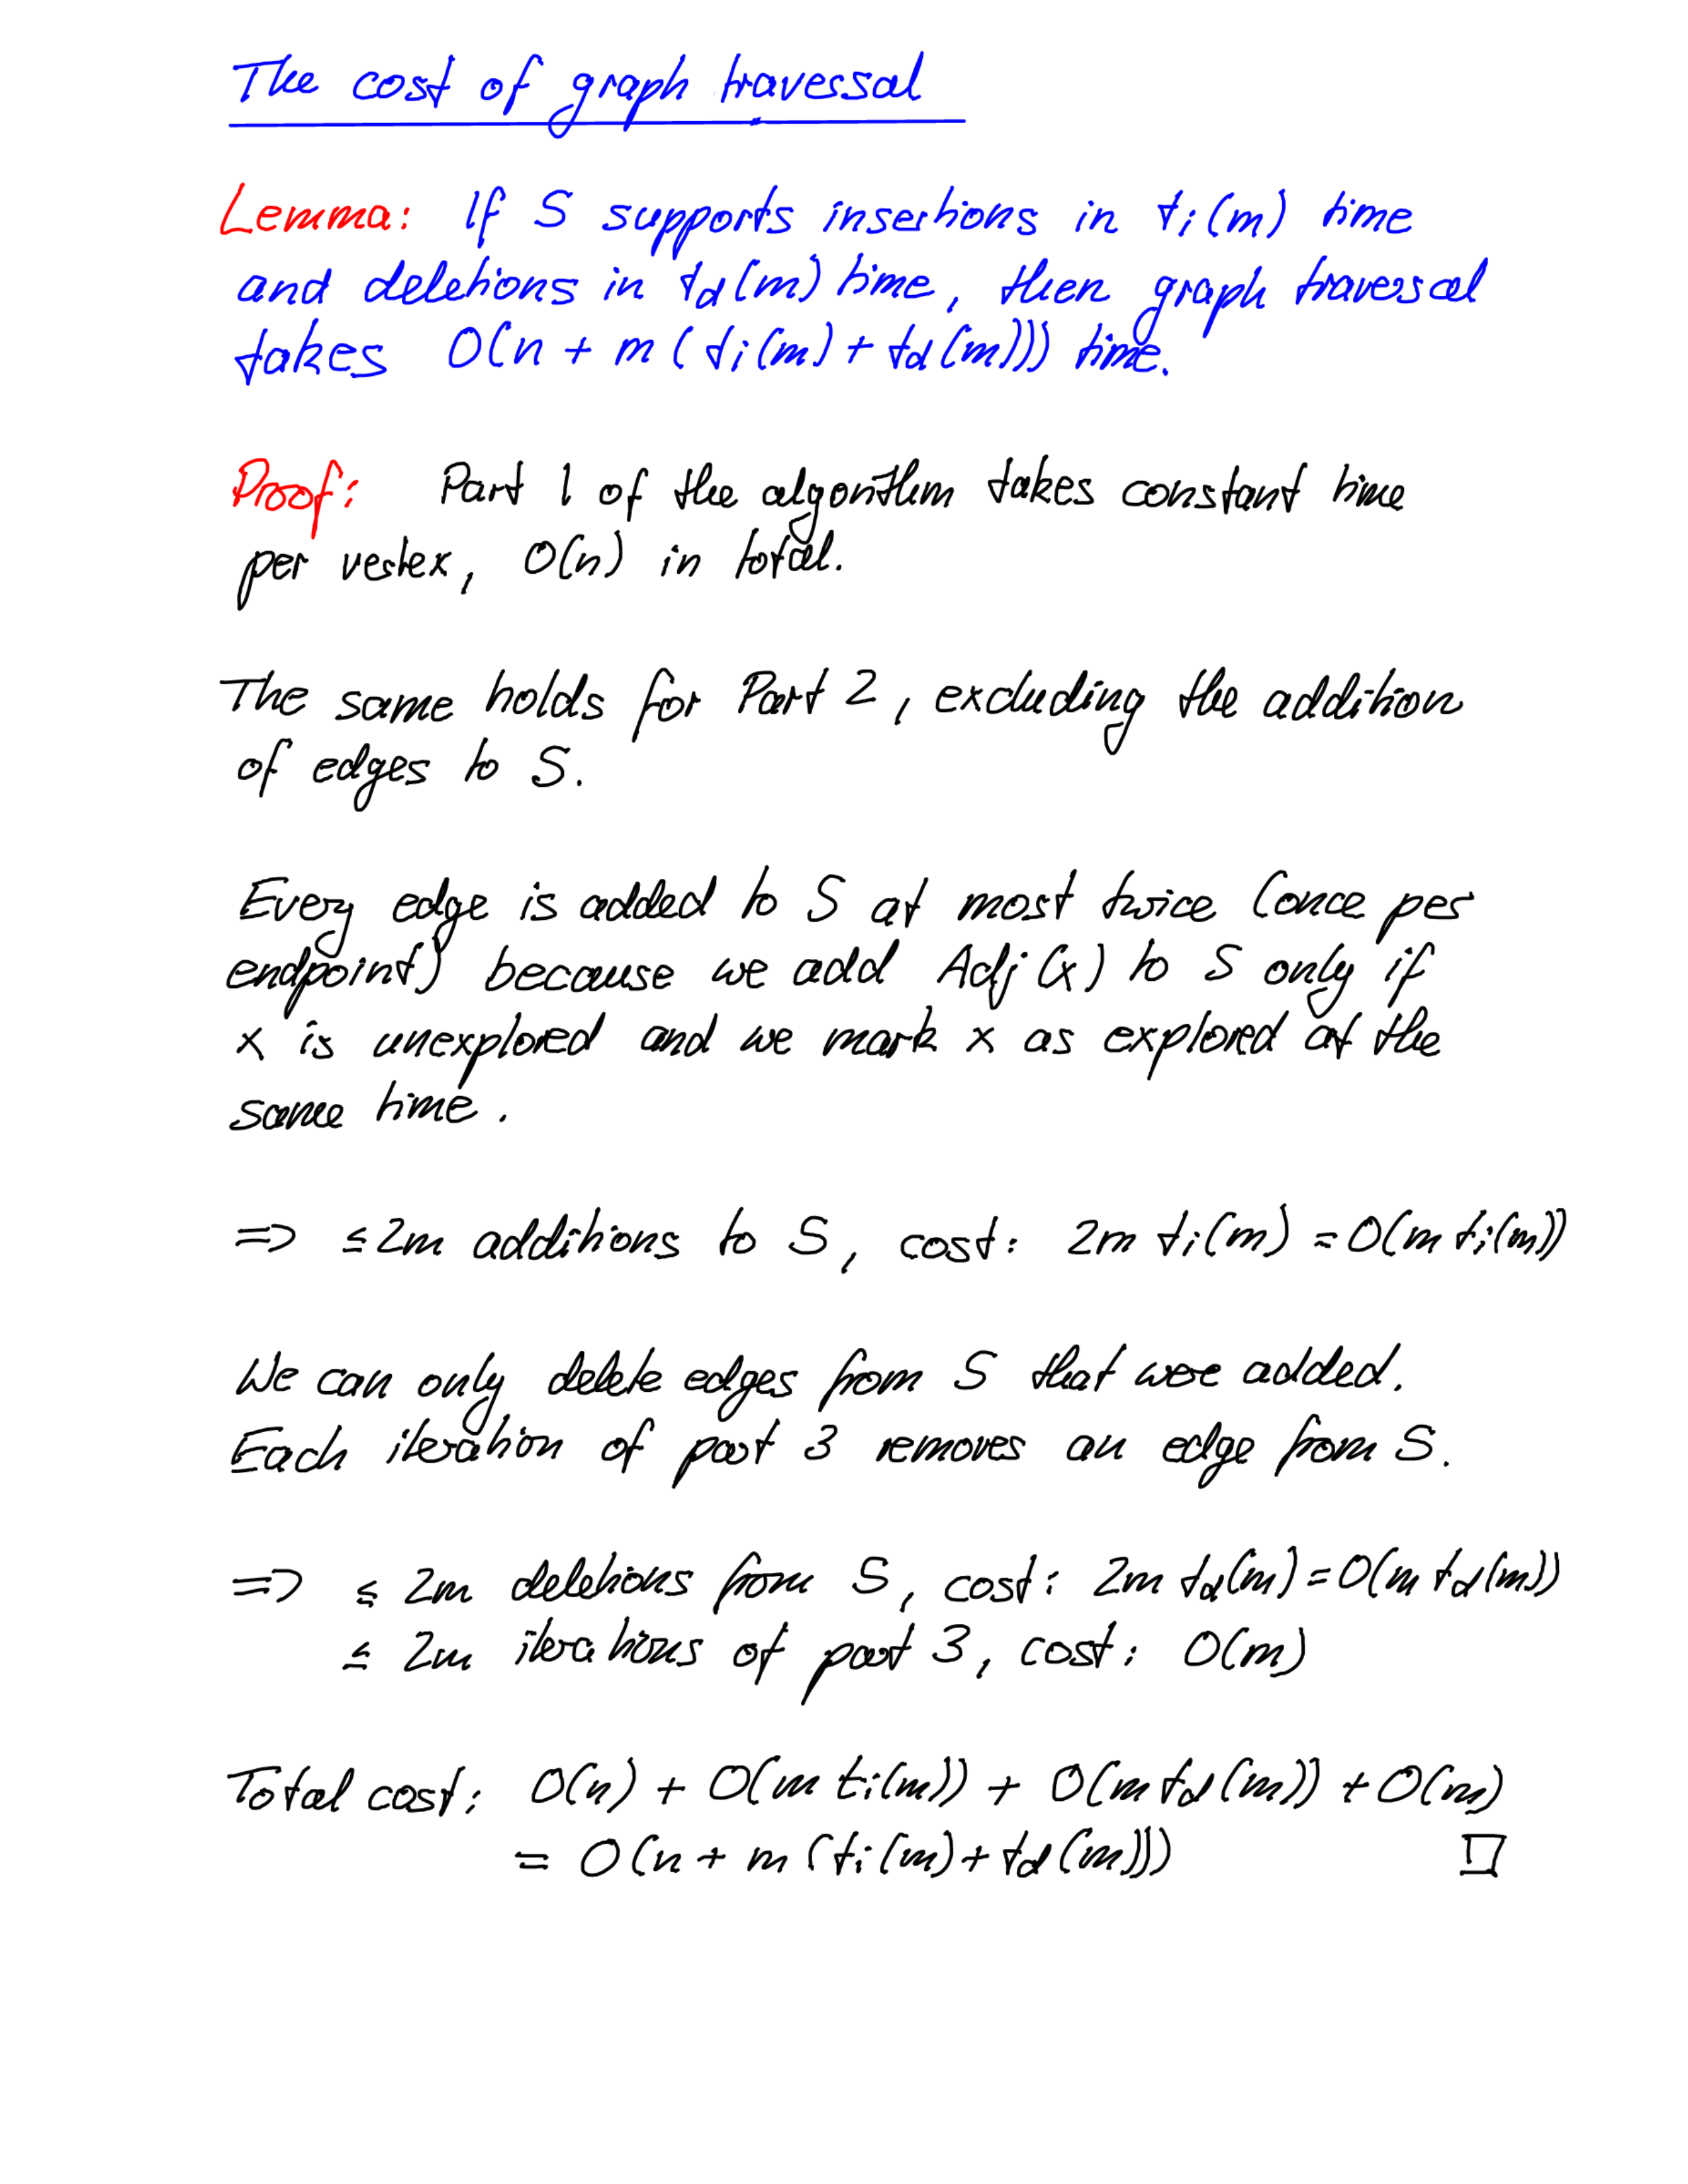 The cost of graph traversal
Lemma: If S supports insertions in ti(m) time
and deletions in td(m) time, then graph traversal
takes O(n + m (ti(m) + td(m))) time.
Proof: Part 1 of the algorithm takes constant time
per vertex, O(n) in total.
The same holds for Part 2, excluding the addition
of edges to S.
Every edge is added to S at most twice (once per
endpoint) because we add Adj(x) to S only if
x is unexplored and we mark x as explored at the
same time.
=> ≤ 2m additions to S, cost: 2m ti(m) = O(m ti(m))
We can only delete edges from S that were added.
Each iteration of part 3 removes an edge from S.
=> ≤ 2m deletions from S, cost: 2m td(m) = O(m td(m))
≤ 2m iterations of part 3, cost: O(m)
Total cost: O(n) + O(m ti(m)) + O(m td(m)) + O(m)
= O(n + m (ti(m) + td(m))) □